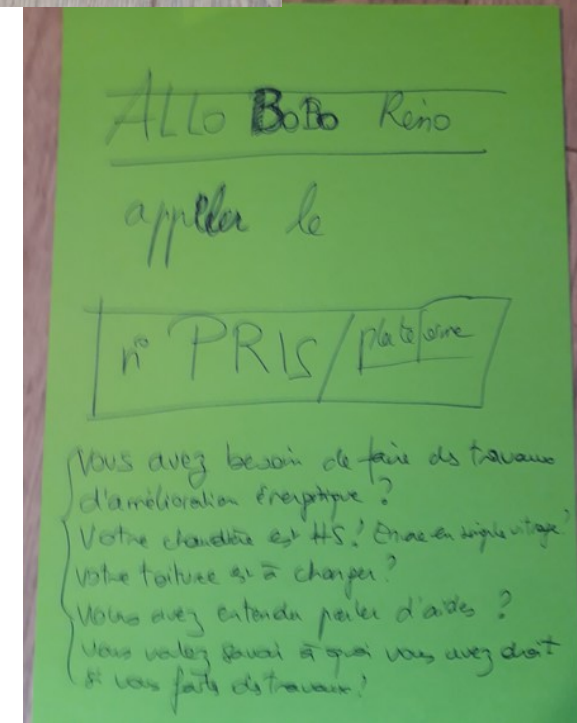 ALLO BoBo Réno
appeller le
n° PRIS / plateforme
Vous avez besoin de faire ds travaux
d'amélioration énergétique ?
Votre chaudière est HS ! Encore en simple vitrage ?
votre toiture est à changer ?
Vous avez entendu parler d'aides ?
Vous voulez savoir à quoi vous avez droit
si vous faites ds travaux !